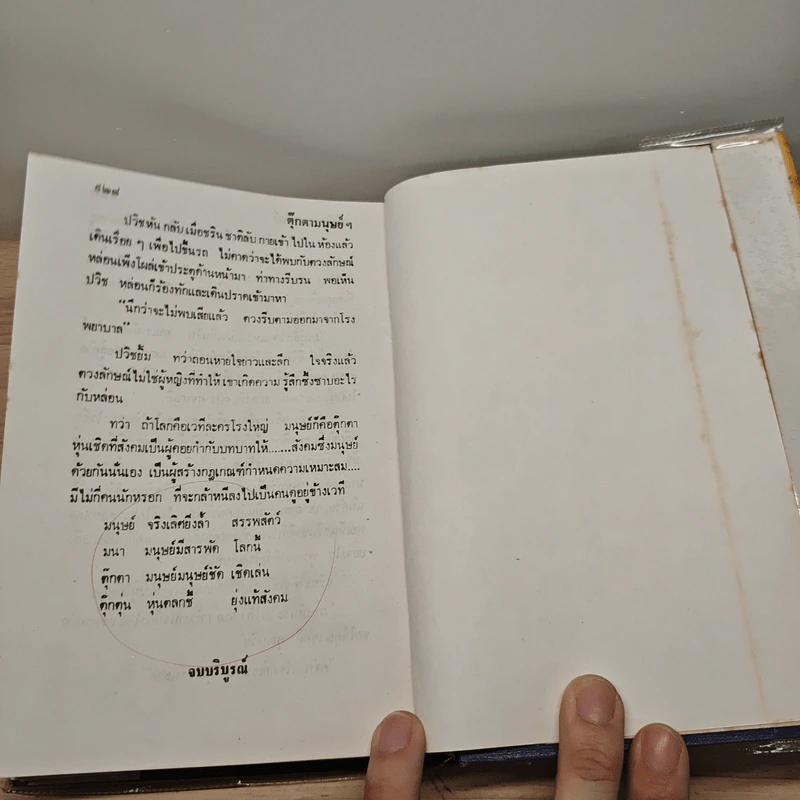 ๕๒๘
ตุ๊กตามนุษย์ ฯ
ปวิชหัน กลับ เมื่อชริน ชาติลับ กายเข้า ไปใน ห้องแล้ว
เดินเรื่อย ๆ เพื่อไปขึ้นรถ ไม่คาดว่าจะได้พบกับดวงลักษณ์
หล่อนเพิ่งโผล่เข้าประตูด้านหน้ามา ท่าทางรีบรน พอเห็น
ปวิช หล่อนก็ร้องทักและเดินปราดเข้ามาหา
“นึกว่าจะไม่พบเสียแล้ว ดวงรีบตามออกมาจากโรง
พยาบาล”
ปวิชยิ้ม ทว่าถอนหายใจยาวและลึก ใจจริงแล้ว
ดวงลักษณ์ไม่ใช่ผู้หญิงที่ทำให้ เขาเกิดความ รู้สึกซึ้งซาบอะไร
กับหล่อน
ทว่า ถ้าโลกคือเวทีละครโรงใหญ่ มนุษย์ก็คือตุ๊กตา
หุ่นเชิดที่สังคมเป็นผู้คอยกำกับบทบาทให้.......สังคมซึ่งมนุษย์
ด้วยกันนั่นเอง เป็นผู้สร้างกฎเกณฑ์กำหนดความเหมาะสม....
มีไม่กี่คนนักหรอก ที่จะกล้าหนีลงไปเป็นคนดูอยู่ข้างเวที
มนุษย์ จริงเลิศยิ่งล้ำ สรรพสัตว์
มนา มนุษย์มีสารพัด โลกนี้
ตุ๊กตา มนุษย์มนุษย์ชัด เชิดเล่น
ตุ๊กตุ่น หุ่นตลกชี้ ยุ่งแท้สังคม
จบบริบูรณ์